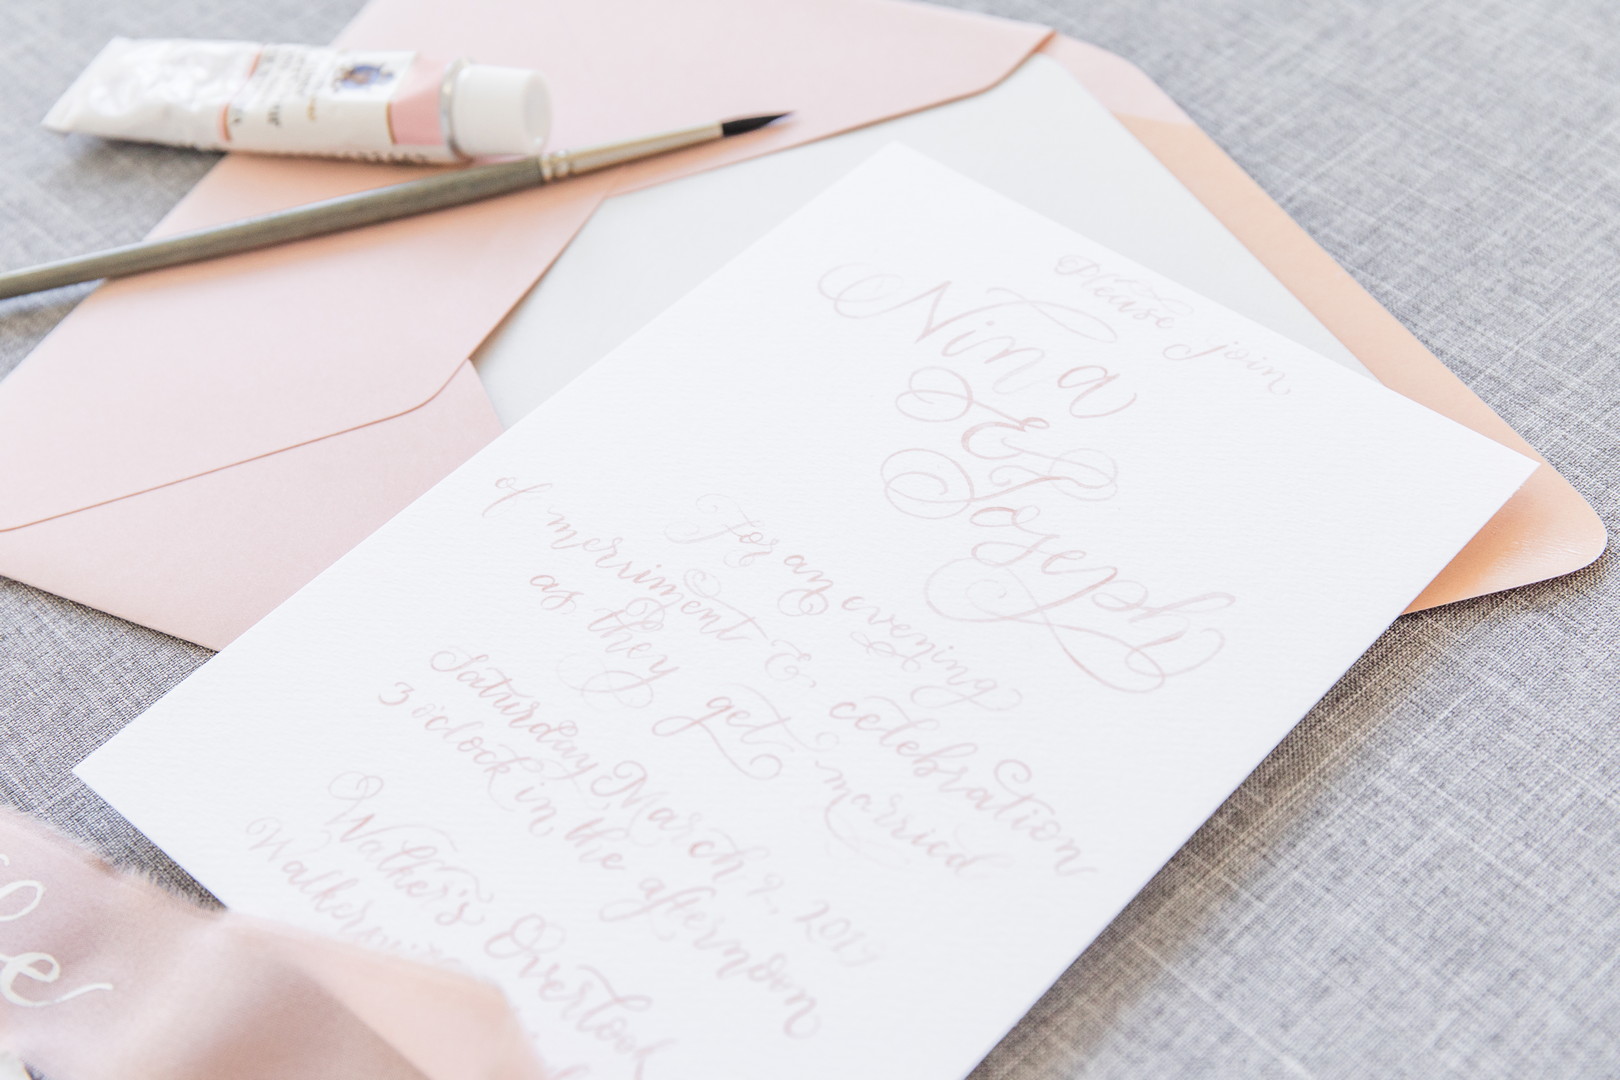 Please join
Nina
& Joseph
For an evening
of merriment & celebration
as they get married
Saturday March 9, 2019
3 o'clock in the afternoon
Walker's Overlook